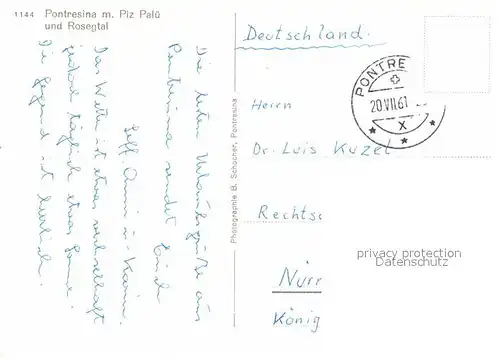 1144 Pontresina m. Piz Palü
und Rosegtal
Die Urlaubsgrüße aus
Pontresina sendet Euch
Das Wetter ist etwas wechselhaft
jedoch täglich etwas Sonne.
Die Gegend ist herrlich.
Photographie B. Schocher, Pontresina
Deutschland.
PONTRE
20.VII.61
X
Herrn
Dr. Luis Kuzel
Rechtsa
Nürr
König
privacy protection
Datenschutz